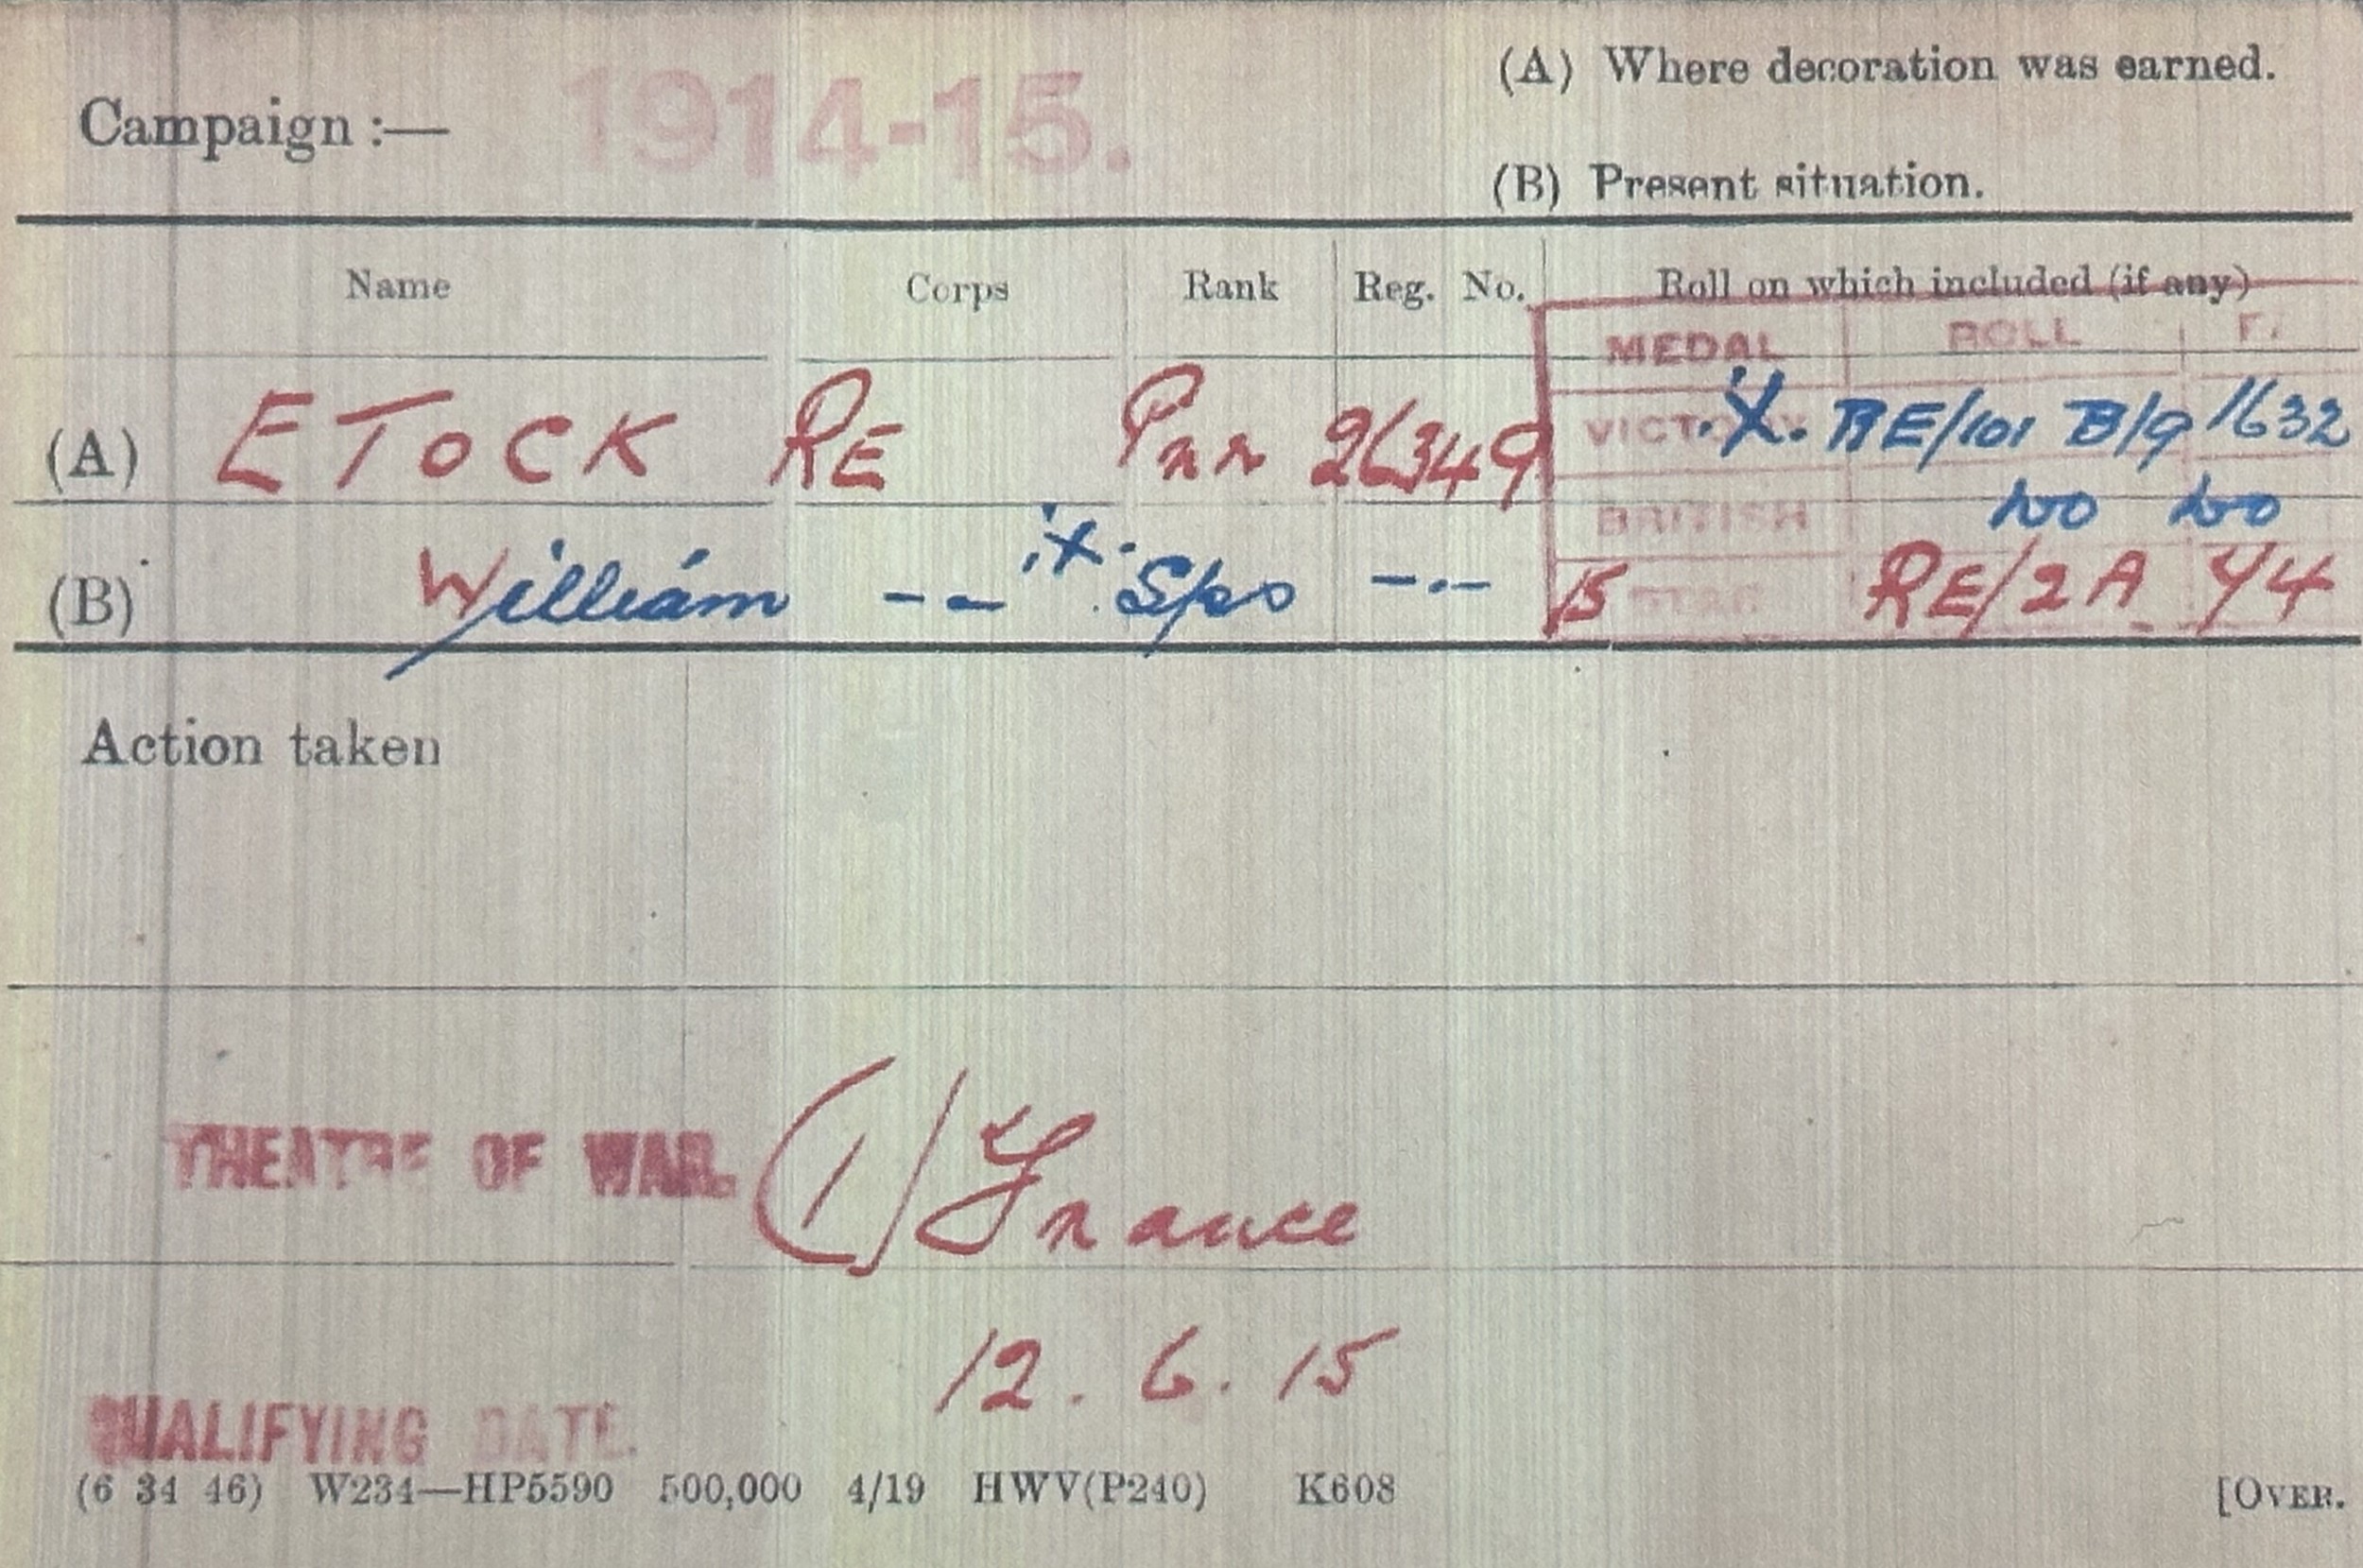 (A) Where decoration was earned.
Campaign :— 1914-15.
(B) Present situation.
Name Corps Rank Reg. No. Roll on which included (if any)
MEDAL ROLL
(A) ETOCK RE Pnr 26349 VICTORY .X. RE/101 B/9 1632
BRITISH Do Do
(B) William -- .X. Spr -.- 15 STAR RE/2A 44
Action taken
THEATRE OF WAR. (1) France
12.6.15
QUALIFYING DATE.
(6 34 46) W234—HP5590 500,000 4/19 HWV(P240) K608 [OVER.